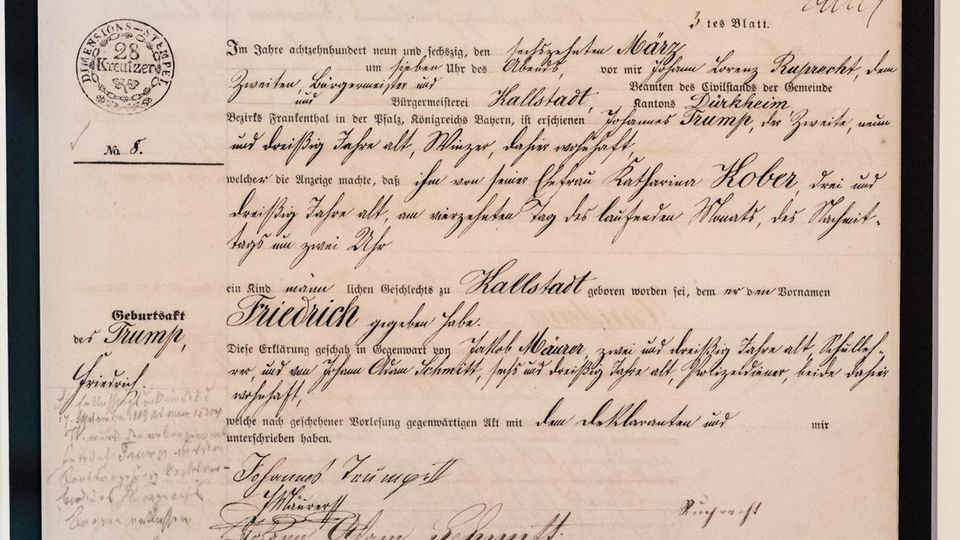 3 tes Blatt.
DIMENSIONS-STEMPEL
28
Kreutzer
Im Jahre achtzehnhundert neun und sechszig, den sechszehnten März
um sieben Uhr des Abends, vor mir Johann Lorenz Ruprecht, dem
Zweiten Bürgermeister und Beamten des Civilstands der Gemeinde
und Bürgermeisterei Kallstadt, Kantons Dürkheim
Bezirks Frankenthal in der Pfalz, Königreichs Bayern, ist erschienen Johannes Trump, der Zweite, neun
No 8.
und dreißig Jahre alt, Winzer, daher wohnhaft,
welcher die Anzeige machte, daß ihm von seiner Ehefrau Katharina Kober, drei und
dreißig Jahre alt, am vierzehnten Tag des laufenden Monats, des Nachmit-
tags um zwei Uhr
ein Kind männ lichen Geschlechts zu Kallstadt geboren worden sei, dem er den Vornamen
Friedrich gegeben habe.
Geburtsakt
des Trump,
Friedrich.
Diese Erklärung geschah in Gegenwart von Jakob Mäurer, zwei und dreißig Jahre alt, Schulleh-
rer, und von Johann Adam Schmitt, sechs und dreißig Jahre alt, Polizeidiener, beide daher
wohnhaft,
welche nach geschehener Vorlesung gegenwärtigen Akt mit dem Deklaranten und mir
unterschrieben haben.
Johannes Trump
Mäurer
Ruprecht
Johann Adam Schmitt.